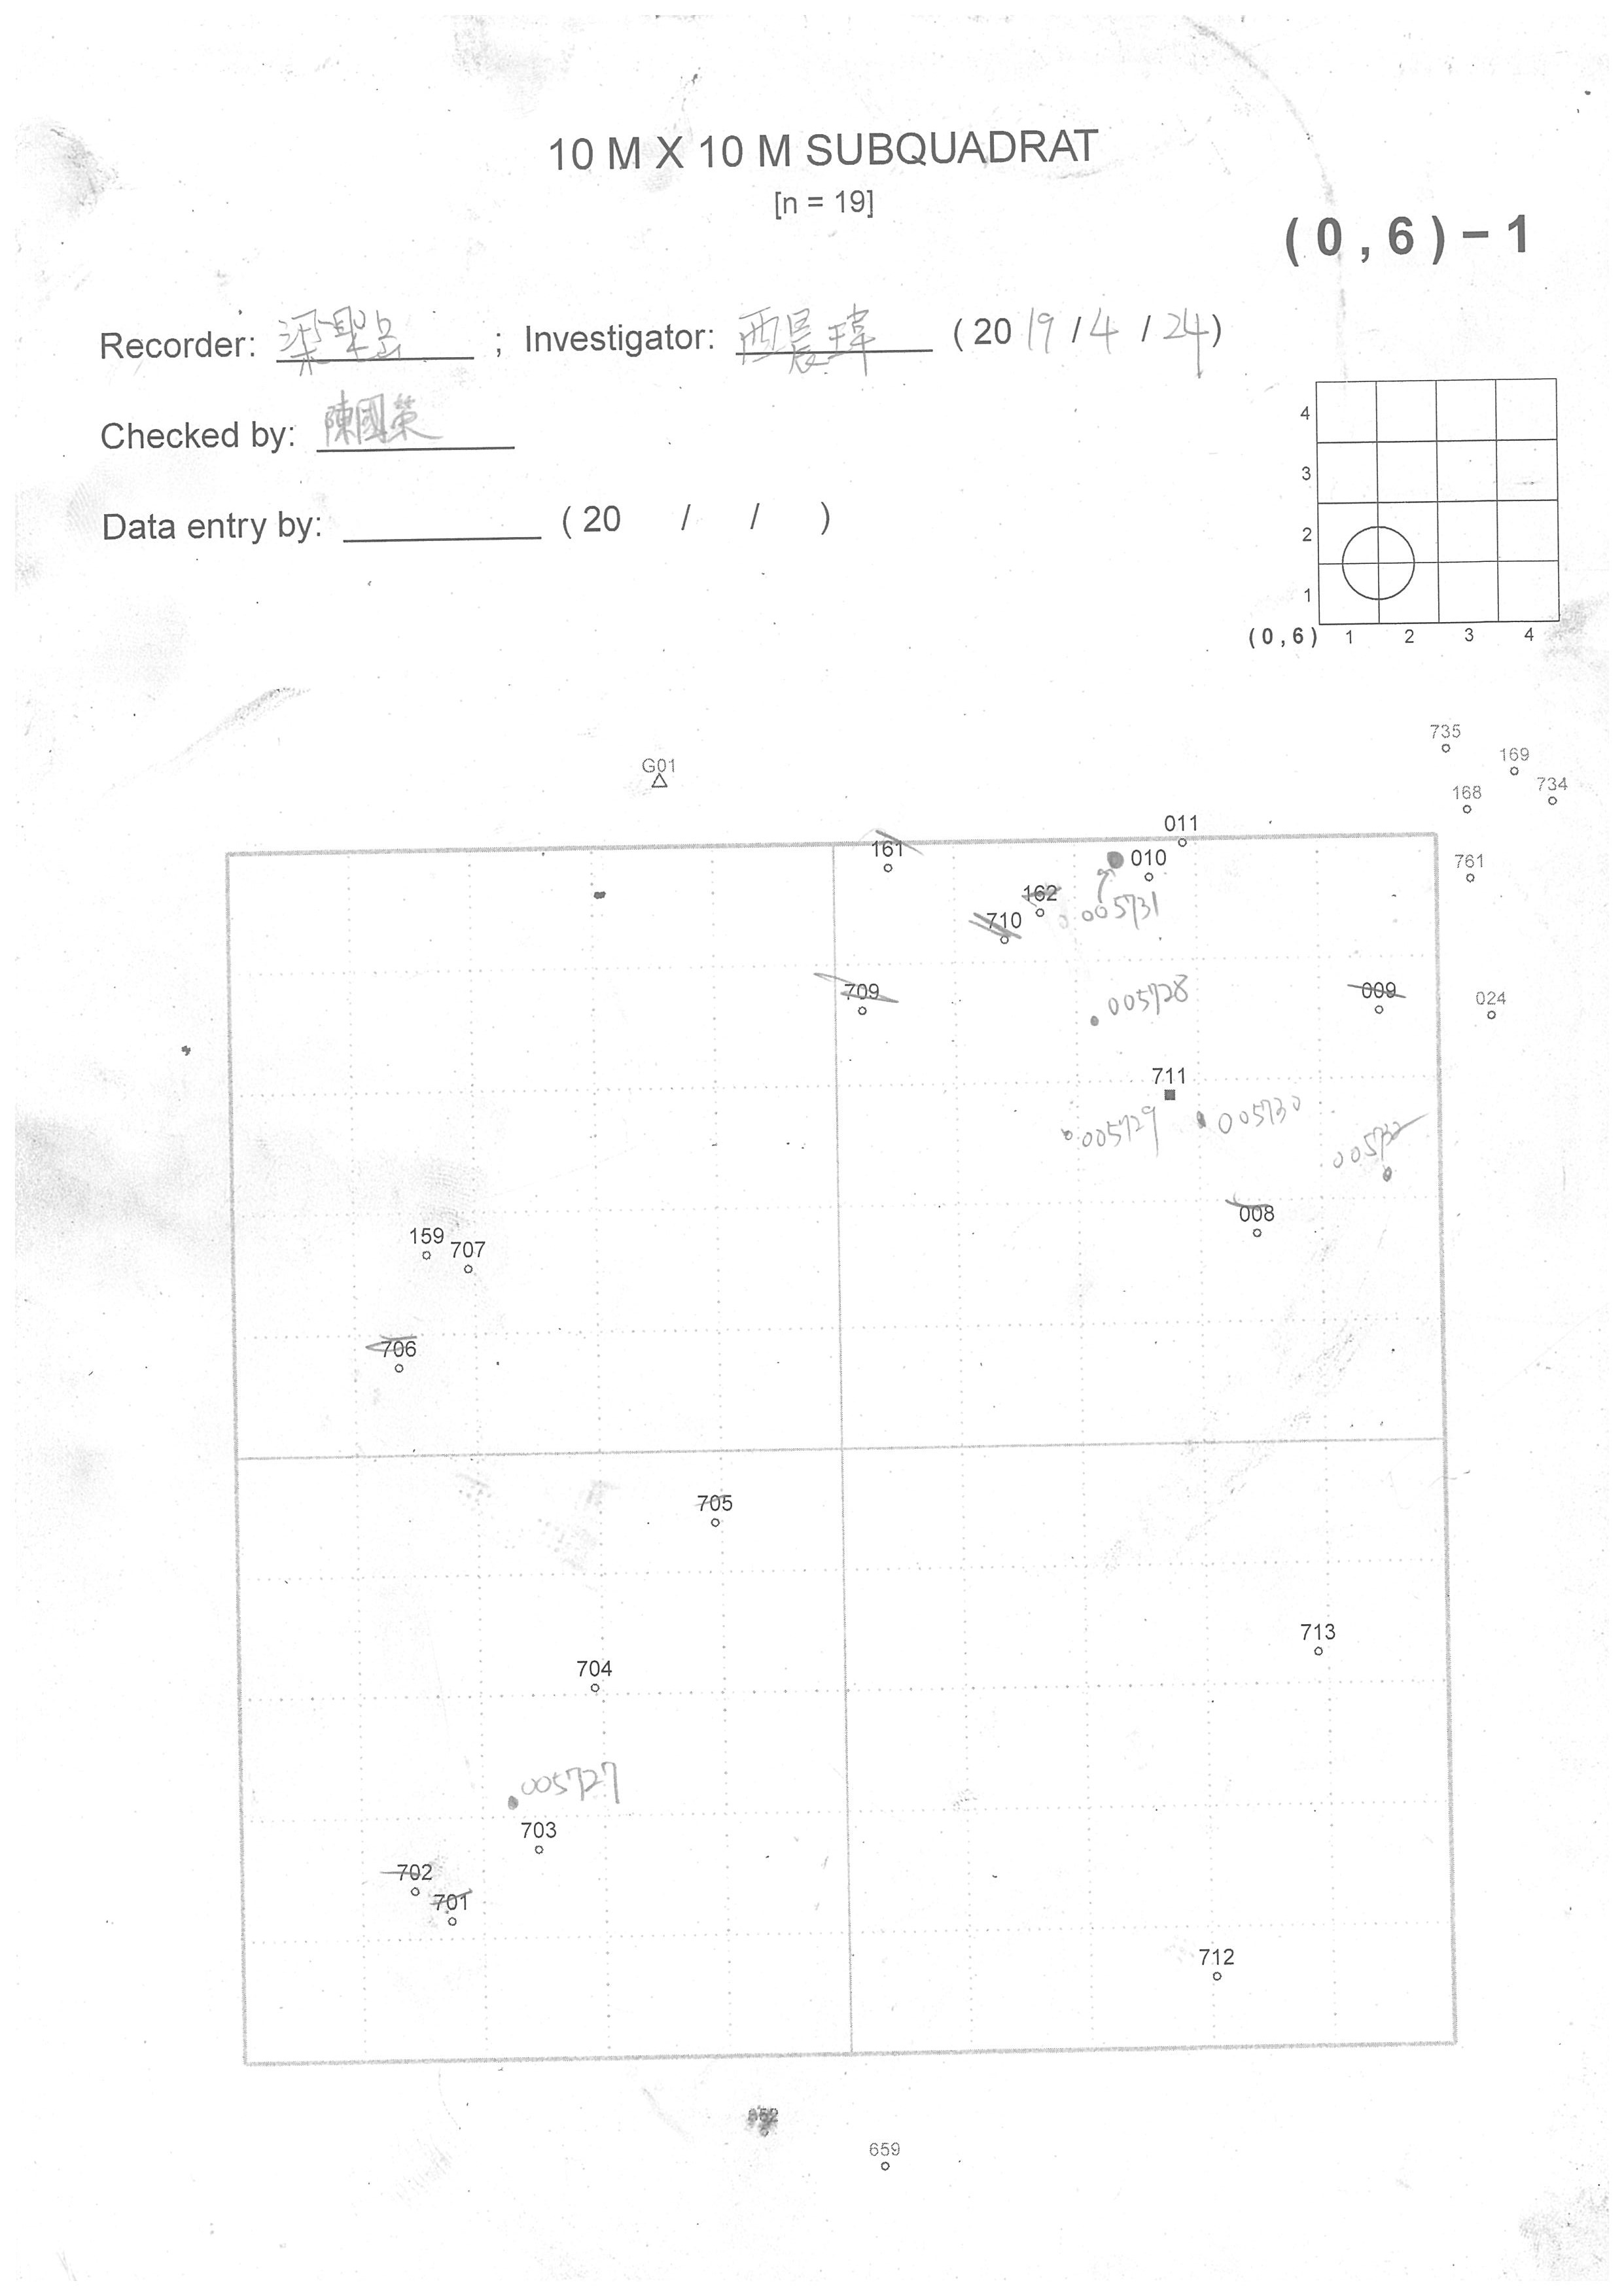 10 M X 10 M SUBQUADRAT
[n = 19]
(0,6)-1
Recorder: ; Investigator: 西晨瑋 (2019/4/24)
Checked by: 陳國榮
Data entry by: (20 / / )
4
3
2
1
(0,6) 1 2 3 4
735
169
G01
168 734
011
161 010 761
162
005731
710
709 005728 009 024
711
005729 005730
005732
008
159 707
706
705
713
704
005727
703
702
701
712
659